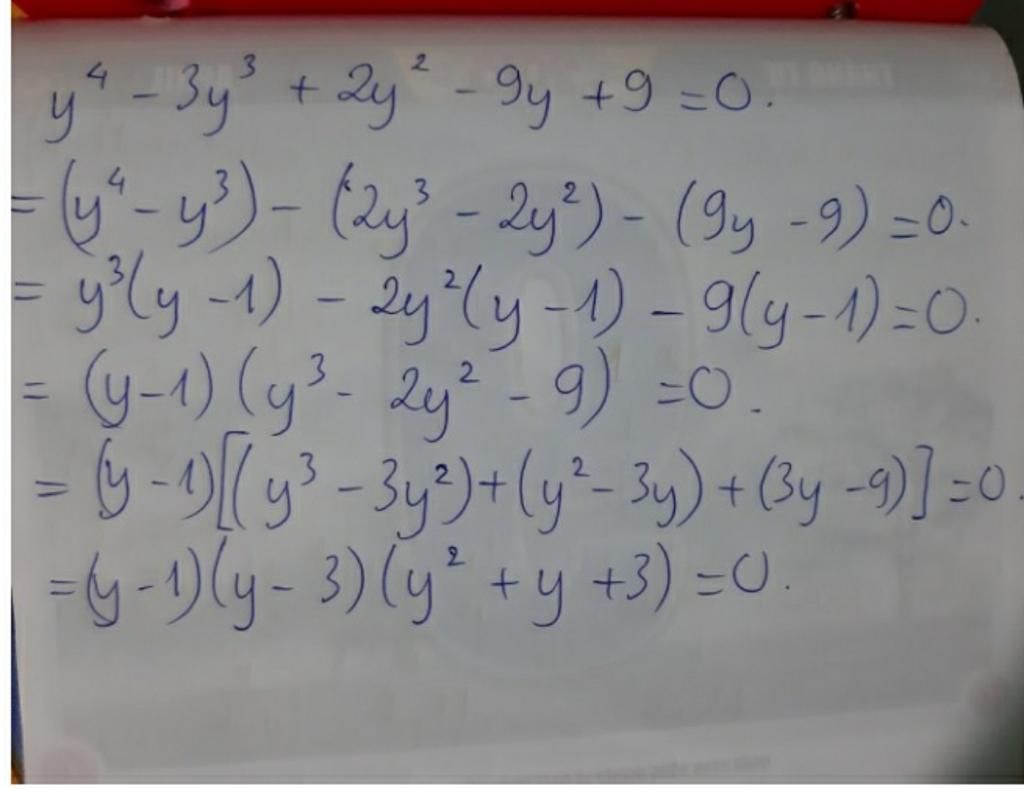 y⁴ - 3y³ + 2y² - 9y + 9 = 0.
= (y⁴ - y³) - (2y³ - 2y²) - (9y - 9) = 0.
= y³(y - 1) - 2y²(y - 1) - 9(y - 1) = 0.
= (y - 1)(y³ - 2y² - 9) = 0.
= (y - 1)[(y³ - 3y²) + (y² - 3y) + (3y - 9)] = 0.
= (y - 1)(y - 3)(y² + y + 3) = 0.